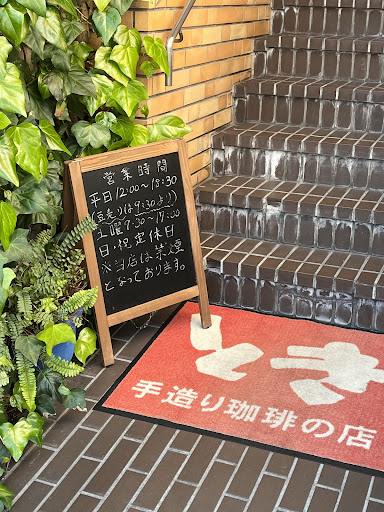 営業時間
平日 12:00〜18:30
(豆売りは9:30より)
土曜 7:30〜17:00
日・祝 定休日
※当店は禁煙
となっております。
手造り珈琲の店